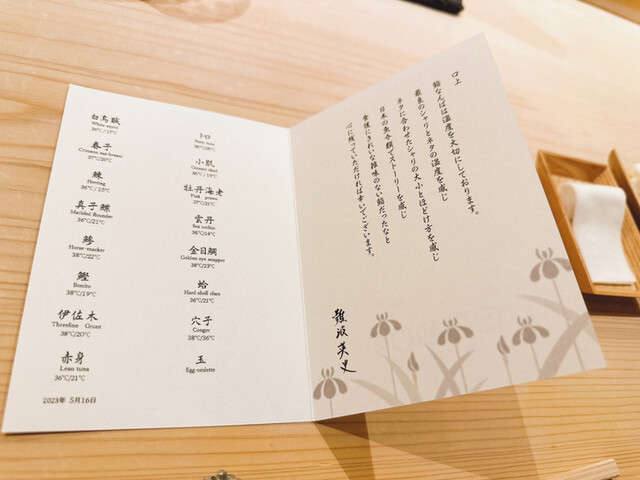 白烏賊
White squid
36℃/17℃
春子
Crimson sea-bream
37℃/20℃
鰊
Herring
36℃/15℃
真子鰈
Marbled flounder
36℃/21℃
鯵
Horse-macker
38℃/22℃
鰹
Bonito
38℃/19℃
伊佐木
Threeline Grunt
38℃/20℃
赤身
Lean tuna
36℃/21℃
2023年 5月16日
トロ
小肌
Gizzard shad
36℃/19℃
牡丹海老
37℃/21℃
雲丹
Sea urchin
36℃/14℃
金目鯛
Golden eye snapper
38℃/23℃
蛤
Hard-shell clam
36℃/21℃
穴子
Conger
38℃/36℃
玉
Egg-omlette
口上
鮨なんばは温度を大切にしております。
最良のシャリとネタの温度を感じ
ネタに合わせたシャリの大小とほどけ方を感じ
日本の魚介類でストーリーを感じ
食後にきれいな雑味のない鮨だったなと
心に残っていただければ幸いでございます。
難波英史